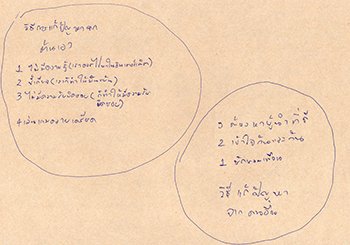 วิธีการแก้ปัญหาจาก
ตัวเอา
1 ไม่มีความรู้(เราจะต้องไปหาในอินเตอร์เน็ต)
2 ขี้เกียจ(เราก็ทำให้ขยันขึ้น)
3 ไม่มีความรับผิดชอบ(ก็ทำให้มีความรับ
ผิดชอบ)
4 เล่นเกมคลายเครียด
3 ต้องหาผู้นำที่ดี
2 เข้าใจกันและกัน
1
วิธีแก้ปัญหา
จาก